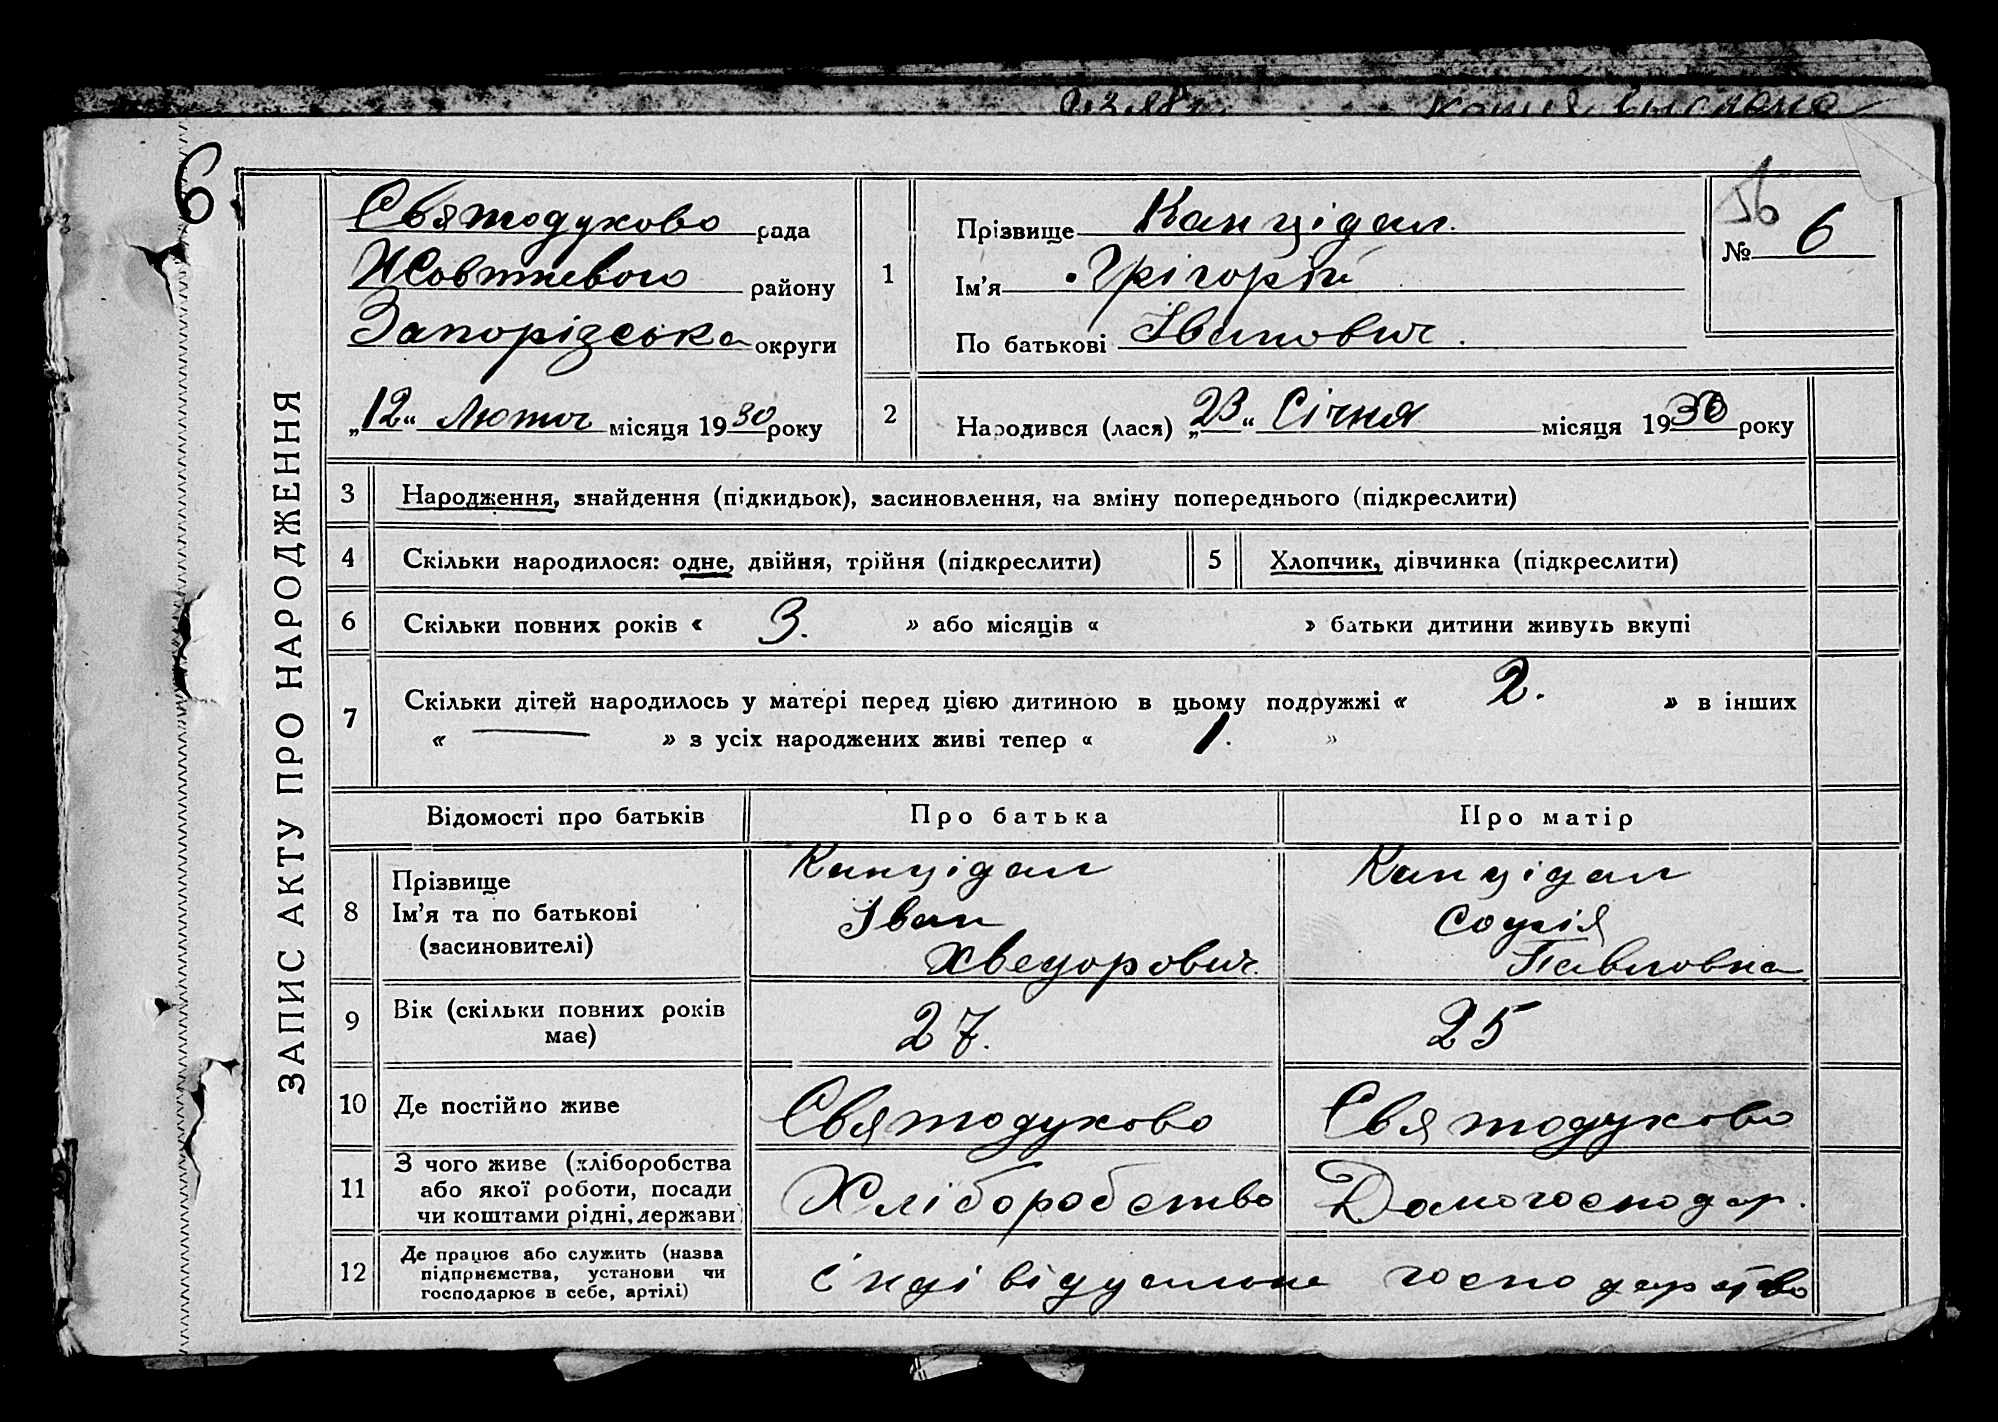 копия выслана
6
ЗАПИС АКТУ ПРО НАРОДЖЕННЯ
Святодухово рада
Жовтневого району
Запорізська округи
„12“ Лютого місяця 1930 року
1
Прізвище Канцідал.
Ім'я Грігорій
По батькові Іванович.
16
№ 6
2 Народився (лася) „23“ Січня місяця 1930 року
3 Народження, знайдення (підкидьок), засиновлення, на вміну попереднього (підкреслити)
4 Скільки народилося: одне, двійня, трійня (підкреслити) 5 Хлопчик, дівчинка (підкреслити)
6 Скільки повних років « 3. » або місяців « » батьки дитини живуть вкупі
7 Скільки дітей народилось у матері перед цією дитиною в цьому подружжі « 2. » в інших
« — » з усіх народжених живі тепер « 1. »
Відомості про батьків Про батька Про матір
8 Прізвище Канцідал Канцідал
Ім'я та по батькові Іван Софія
(засиновителі) Хведорович. Павловна
9 Вік (скільки повних років має) 27. 25
10 Де постійно живе Святодухово Святодухово
11 З чого живе (хліборобства або якої роботи, посади чи коштами рідні, держави) Хліборобство Домогосподар.
12 Де працює або служить (назва підприємства, установи чи господарює в себе, артілі) індівідуальне господарство